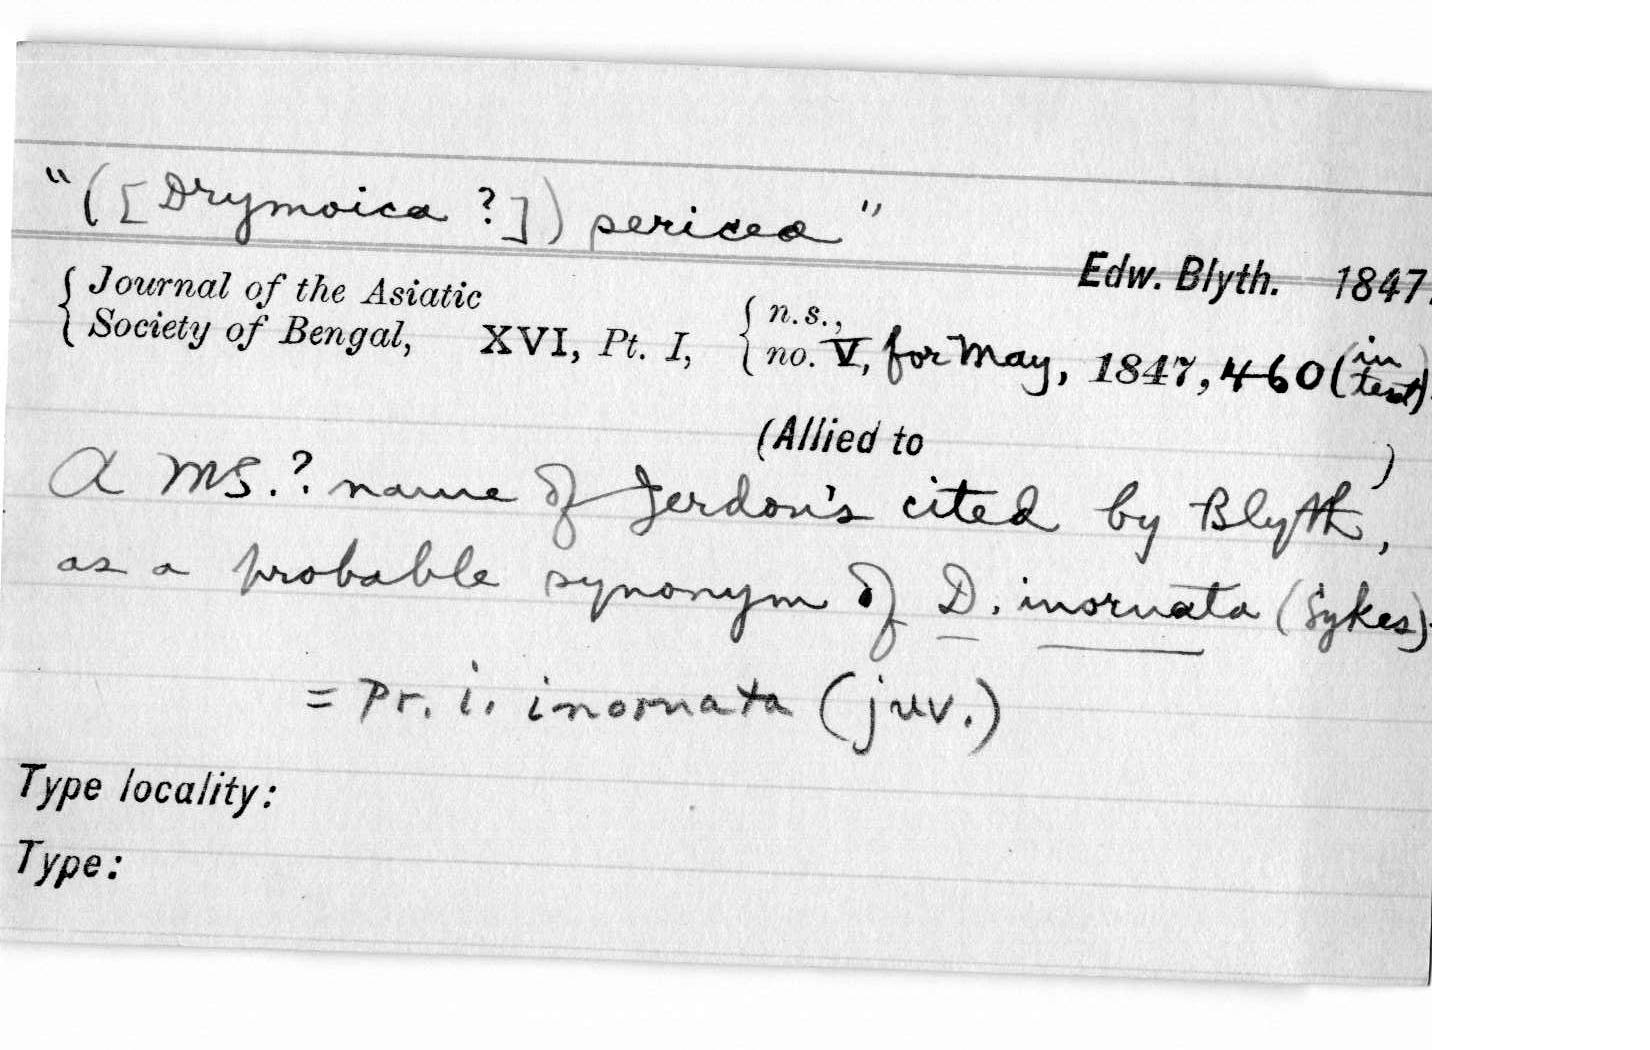 "([Drymoica ?]) sericea"
Edw. Blyth. 1847.
{ Journal of the Asiatic
Society of Bengal, XVI, Pt. I, { n.s.,
no. V, for May, 1847, 460 (in text).
(Allied to )
A MS.? name of Jerdon's cited by Blyth,
as a probable synonym of D. inornata (Sykes).
= Pr. i. inornata (juv.)
Type locality:
Type: